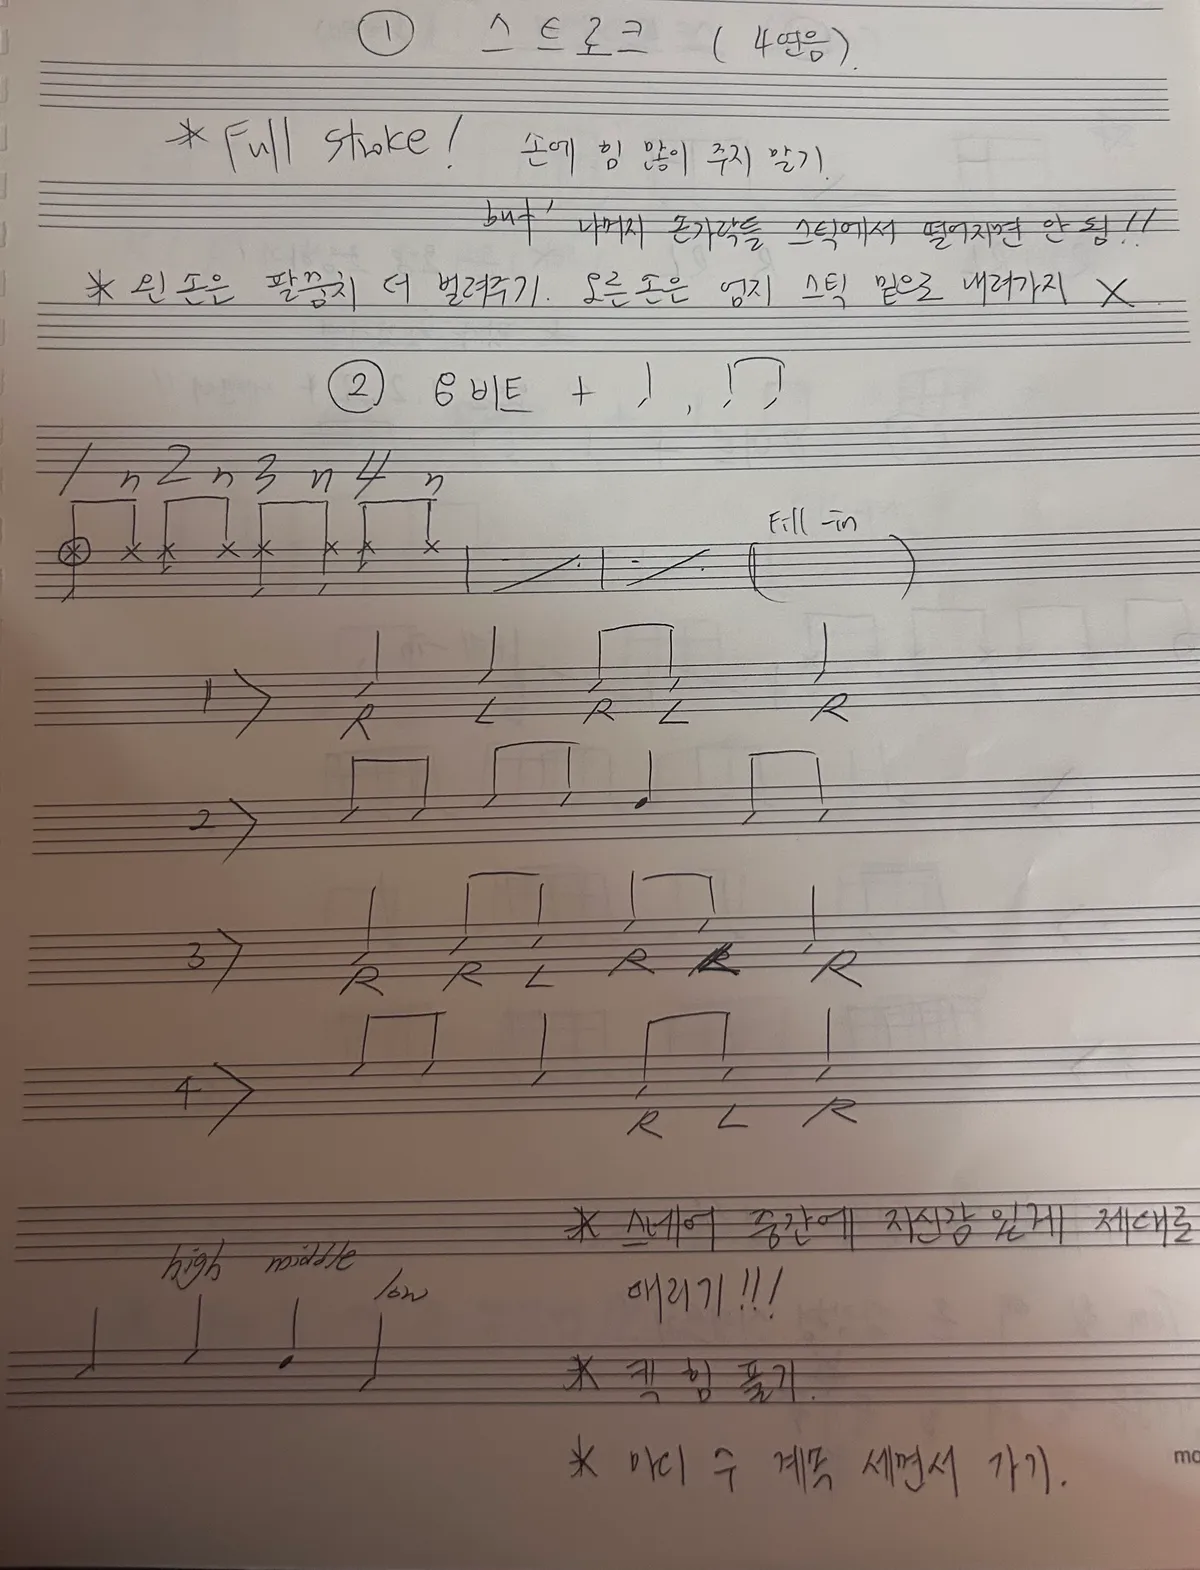 ① 스트로크 (4연음).
* Full stroke! 손에 힘 많이 주지 말기.
but, 나머지 손가락들 스틱에서 떨어지면 안 됨!!
* 왼손은 팔꿈치 더 벌려주기. 오른손은 엄지 스틱 밑으로 내려가지 X
② 8비트 + ♩, ♫
1 n 2 n 3 n 4 n
Fill-in
1>
R L R L R
2>
3>
R R L R R
4>
R L R
* 스네어 중간에 자신감 있게 제대로
때리기!!!
high middle low
* 킥 힘 풀기.
* 마디 수 계속 세면서 가기.